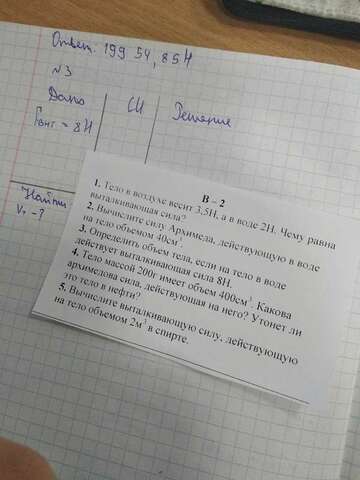 Ответ. 199 54,85Н
№3
Дано
СИ
Решение
Fвыт = 8Н
Найти
V. -?
В – 2
1. Тело в воздухе весит 3,5Н, а в воде 2Н. Чему равна
выталкивающая сила?
2. Вычислите силу Архимеда, действующую в воде
на тело объемом 40см³.
3. Определить объем тела, если на тело в воде
действует выталкивающая сила 8Н.
4. Тело массой 200г имеет объем 400см³. Какова
архимедова сила, действующая на него? Утонет ли
это тело в нефти?
5. Вычислите выталкивающую силу, действующую
на тело объемом 2м³ в спирте.